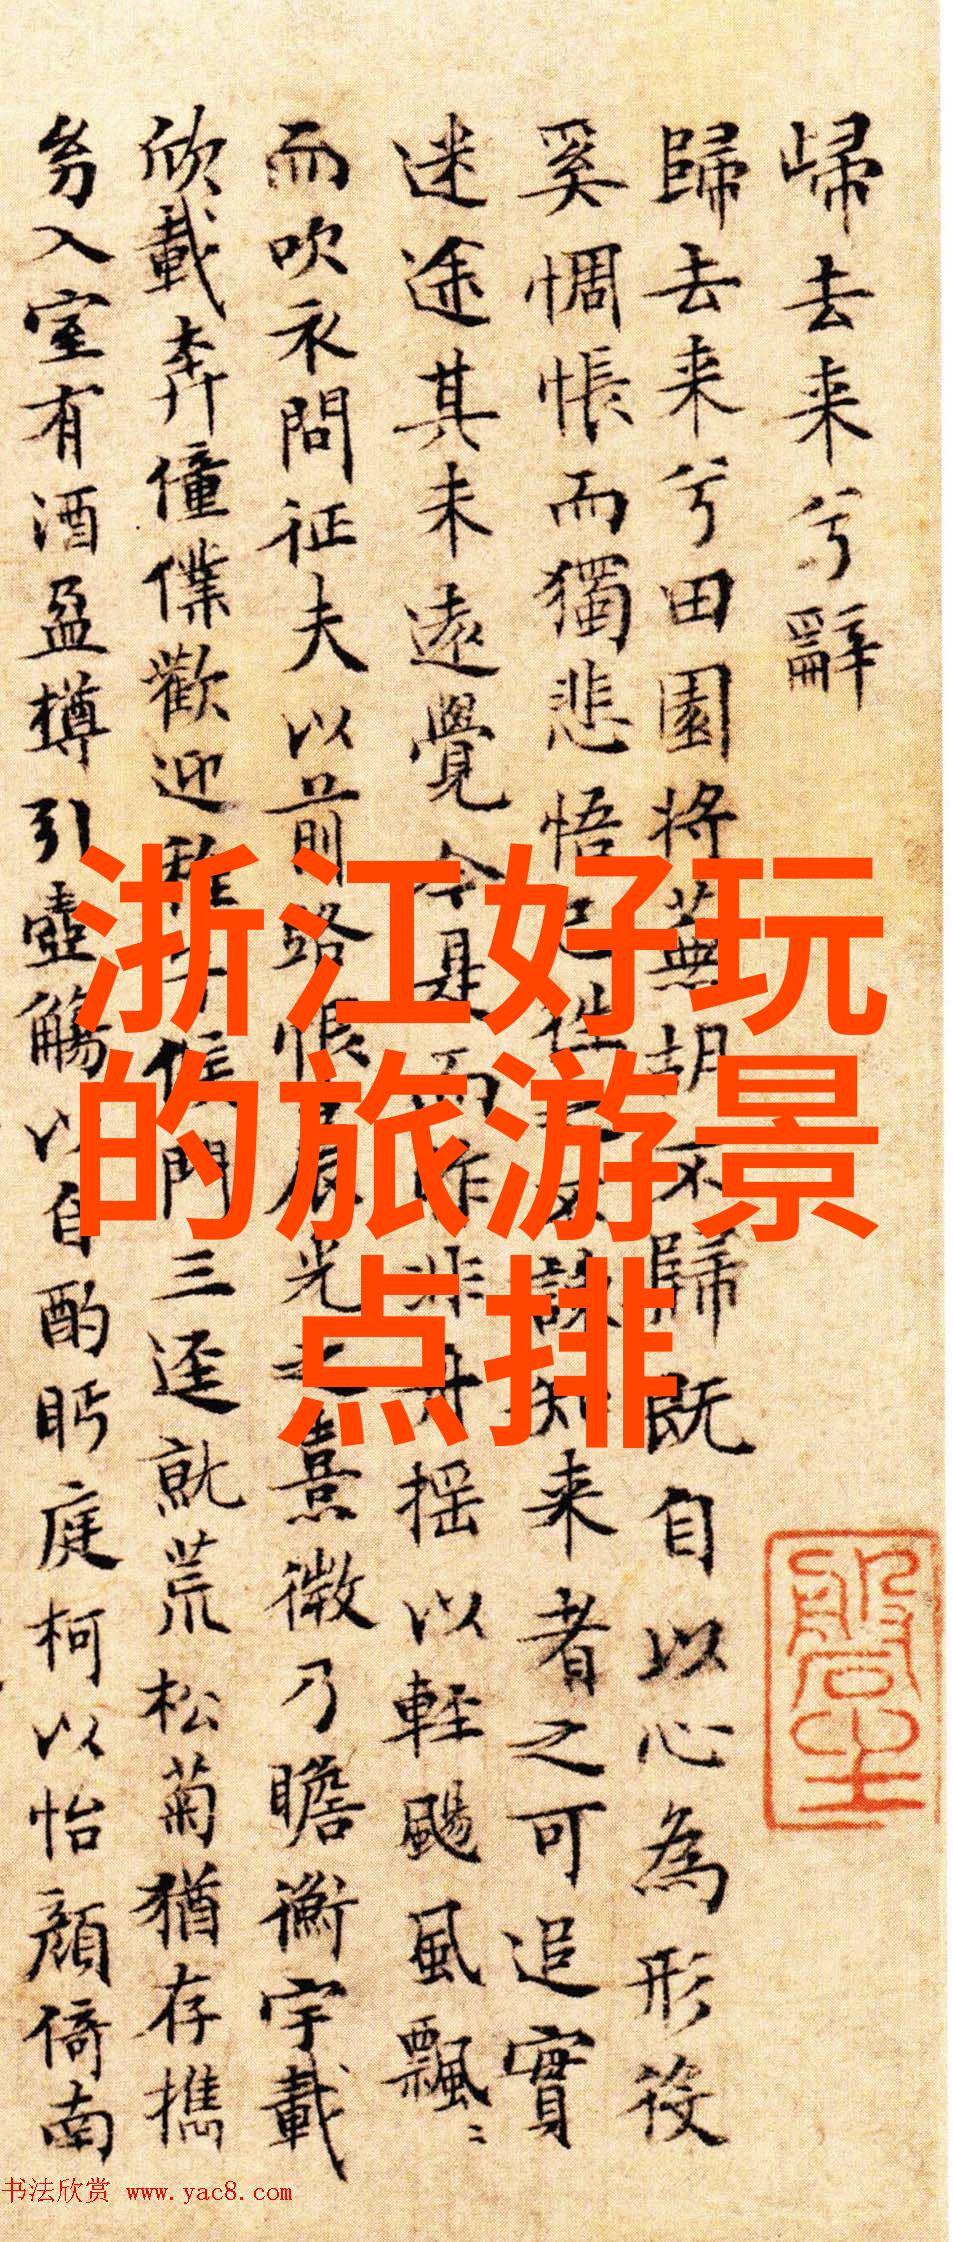 歸去来兮辭
歸去来兮田園将蕪胡不歸既自以心為形役
奚惆悵而獨悲悟已往之不諫知来者之可追實
迷途其未遠覺今是而昨非舟揺以輕颺風飄〻
而吹衣問征夫以前路恨晨光之熹微乃瞻衡宇載
欣載奔僮僕歡迎稚子候門三逕就荒松菊猶存携
幼入室有酒盈樽引壺觴以自酌眄庭柯以怡顏倚南
浙江好玩
的旅游景
点排
书法欣赏 www.yac8.com